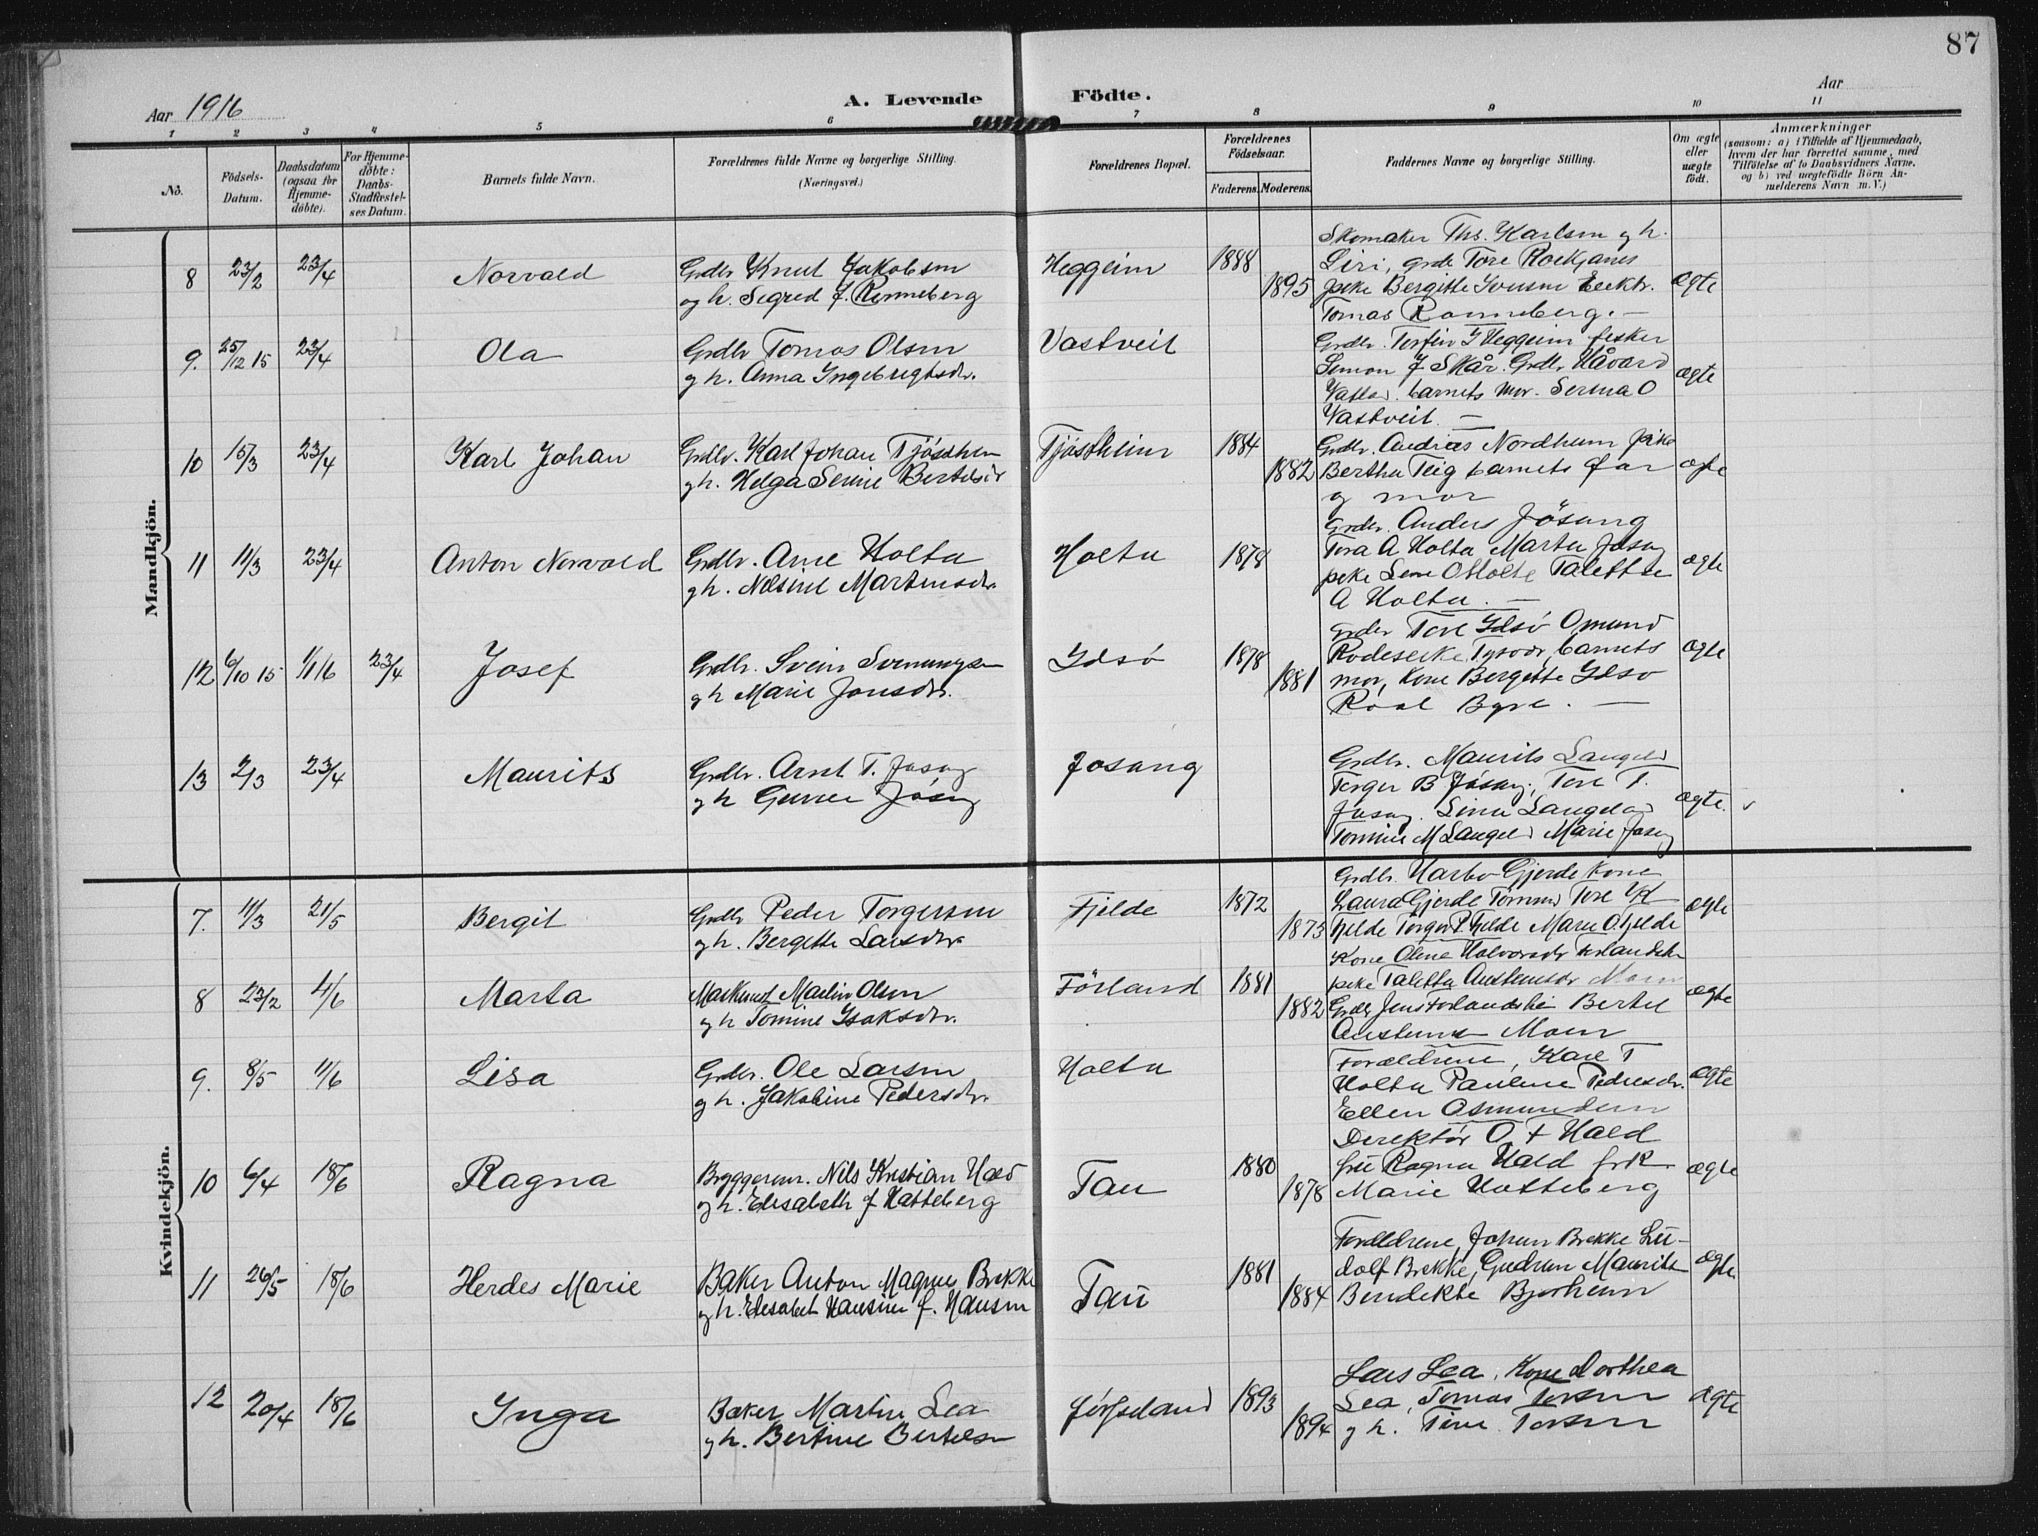 87
Aar 1916
A. Levende Födte.
Aar
1 2 3 4 5 6 7 8 9 10 11
No.
Födsels-Datum.
Daabsdatum (ogsaa for Hjemme-döbte).
For Hjemme-döbte: Daabs-Stadfæstel-ses Datum.
Barnets fulde Navn.
Forældrenes fulde Navne og borgerlige Stilling. (Næringsvei.)
Forældrenes Bopæl.
Forældrenes Födselsaar.
Faderens. Moderens.
Faddernes Navne og borgerlige Stilling.
Om ægte eller uægte födt.
Anmærkninger
(saasom: a) i Tilfælde af Hjemmedaab, hvem der har forrettet samme, med Tilföielse af to Daabsvidners Navne, og b) ved uægtefödte Börn An-melderens Navn m. V.)
Mandkjön.
8 23/2 23/4 Norvald
Grdbr Knut Jakobsen
og h. Sigred f. Rønneberg
Heggeim 1888 1895
Skomaker Ths. Karlsen og h.
Siri, grdb Tore
peke Bergitte
Tomas Ronneberg. —
ægte
9. 25/12 15 23/4 Ola
Grdbr Tomas Olsen
og h. Anna Ingebrigtsdtr.
Vastveit
Grdbr. Torfin T Heggeim fisker
Simon J Skår. Grdbr. Håvard
barnets mor. Serina O
Vastveit —
ægte
10 15/3 23/4 Karl Johan
Grdbr. Karl Johan Tjöstheim
og h. Helga Serine Bertelsdtr
Tjöstheim 1884 1882
Grdbr. Andreas Nordheim peke
Bertha Teig barnets far
og mor
ægte
11 11/3 23/4 Anton Norvald
Grdbr. Arne Holta
og h. Nelsine Martinsdtr.
Holta 1878
Grdbr. Anders Jösang
Tora A Holta Marta Josang
peke Lene O Holta Talette
A Holta. —
ægte
12 6/10 15 1/1 16 23/4 Josef
Grdbr. Svein Svenungsen
og h Marie Jonsdtr.
Idsö 1878 1881
Grdbr Tore Idsö Omund
barnets
mor, Kone Bergitte Idso
Roal Byre. —
ægte
13 2/3 23/4 Maurits
Grdbr. Arnt T. Josang
og h Jösang
Josang
Grdbr. Maurits Langeld
Torger B Jösang, Tore T.
Josang. Sina Langeland
Tomine M Langeld Marie Josang
ægte. v
Kvindekjön.
7. 11/3 21/5 Bergit
Grdbr Peder Torgersen
og h. Bergitte Larsdtr.
Fjelde 1872 1873
Grdbr. Gjerde Kone
Laura Gjerde Tomine Tore
Fjelde Torger P. Fjelde Marie O. Fjelde
Kone Olene Halvorsdtr
ægte
8 23/2 4/6 Marta
Maskinist Martin Olsen
og h Tomine Isaksdtr.
Förland 1881 1882
peke Taletta Austensdtr
Grdbr Jens Bertel
Austensen
ægte
9. 8/5 11/6 Lisa
Grdbr. Ole Larsen
og h. Jakobine Pedersdtr.
Holta
Forældrene, Karl T
Holta Pauline Pedersdtr.
Ellen Osmundsen
ægte
10 6/4 18/6 Ragna
Bryggerim. Nils Kristian Hald
og h. Elisabeth f Hatteberg
Tau 1880 1878
Direktör O. F Hald
frü Ragna Hald frk.
Marie Hatteberg
ægte
11 26/5 18/6 Herdes Marie
Baker Anton Magnus Brekke
og h. Elesabet Hansine f. Hansen
Taü 1881 1884
Forældrene, Johan Brekke Lü-
dolf Brekke, Gudrun Maurits
Bendikte Bjorheim
ægte
12 20/4 18/6 Inga
Baker Martin Lea
og h. Bertine Bertelsen
Jörpeland 1893 1894
Lars Lea, Kone Dorthea
Lea, Tomas Torsen
og h. Tine Torsen
ægte